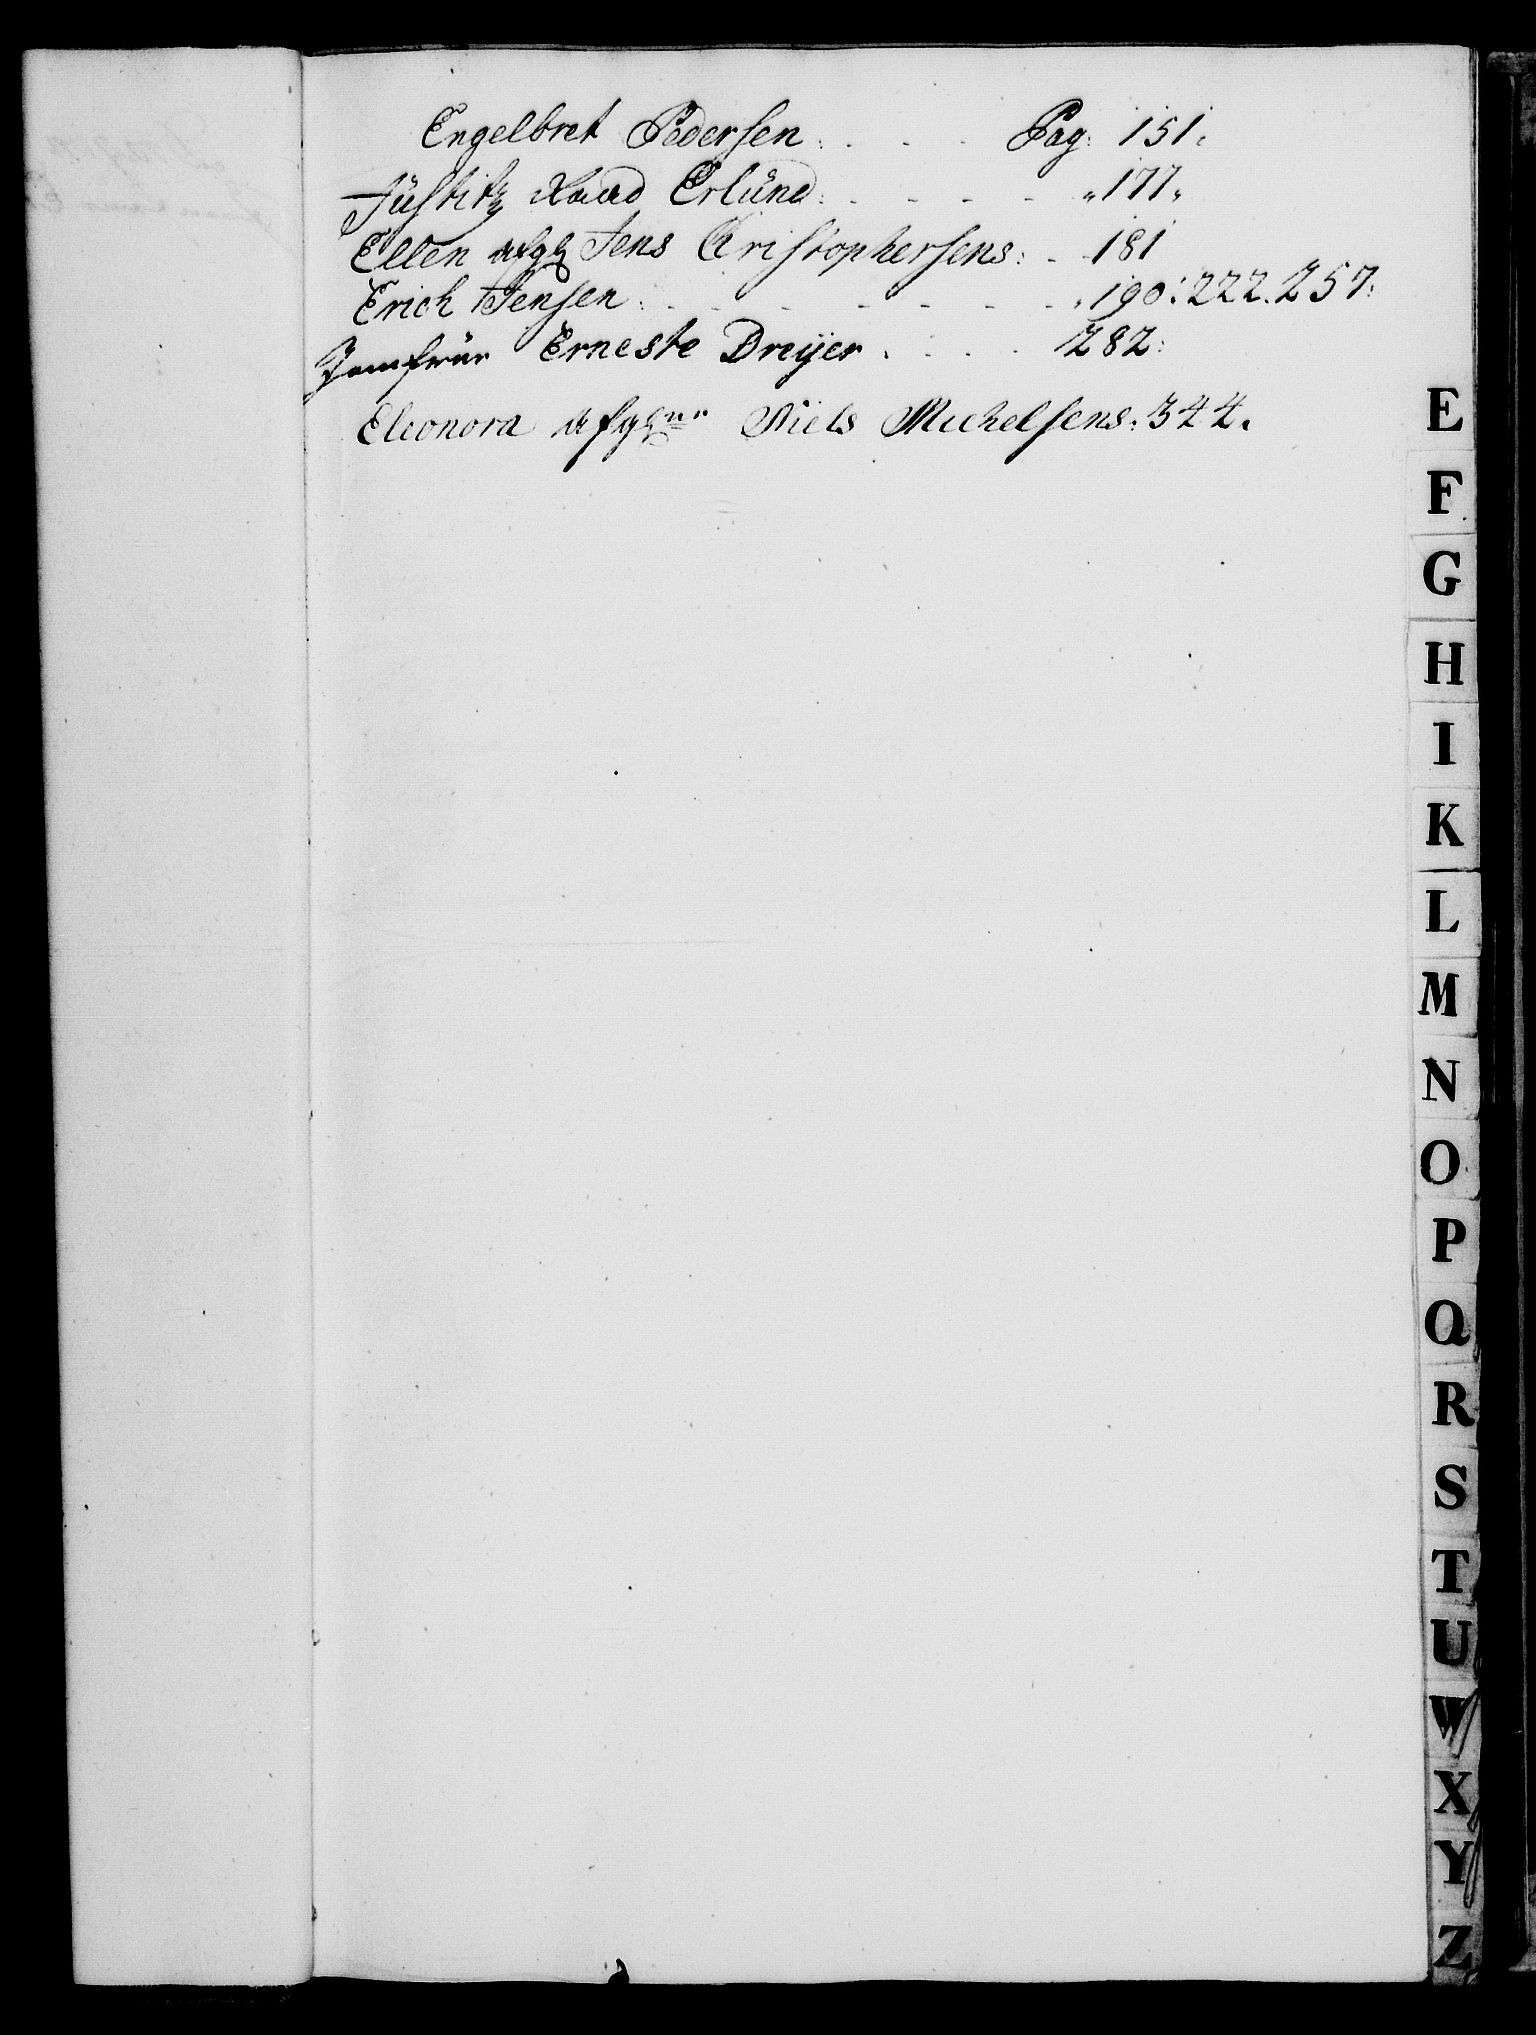 Engelbret Pedersen: . . . Pag: 151.
Justitz Raad Erlund: - - - - „177„
Ellen afg: Jens Christophersens: - 181
Erich Jensen: - - - - - - „190:222.257:
Jomfrür Erneste Dreÿer . . . . 282:
Eleonora afg: Niels Michelsens. 344.
E
F
G
H
I
K
L
M
N
O
P
Q
R
S
T
U
W
X
Y
Z